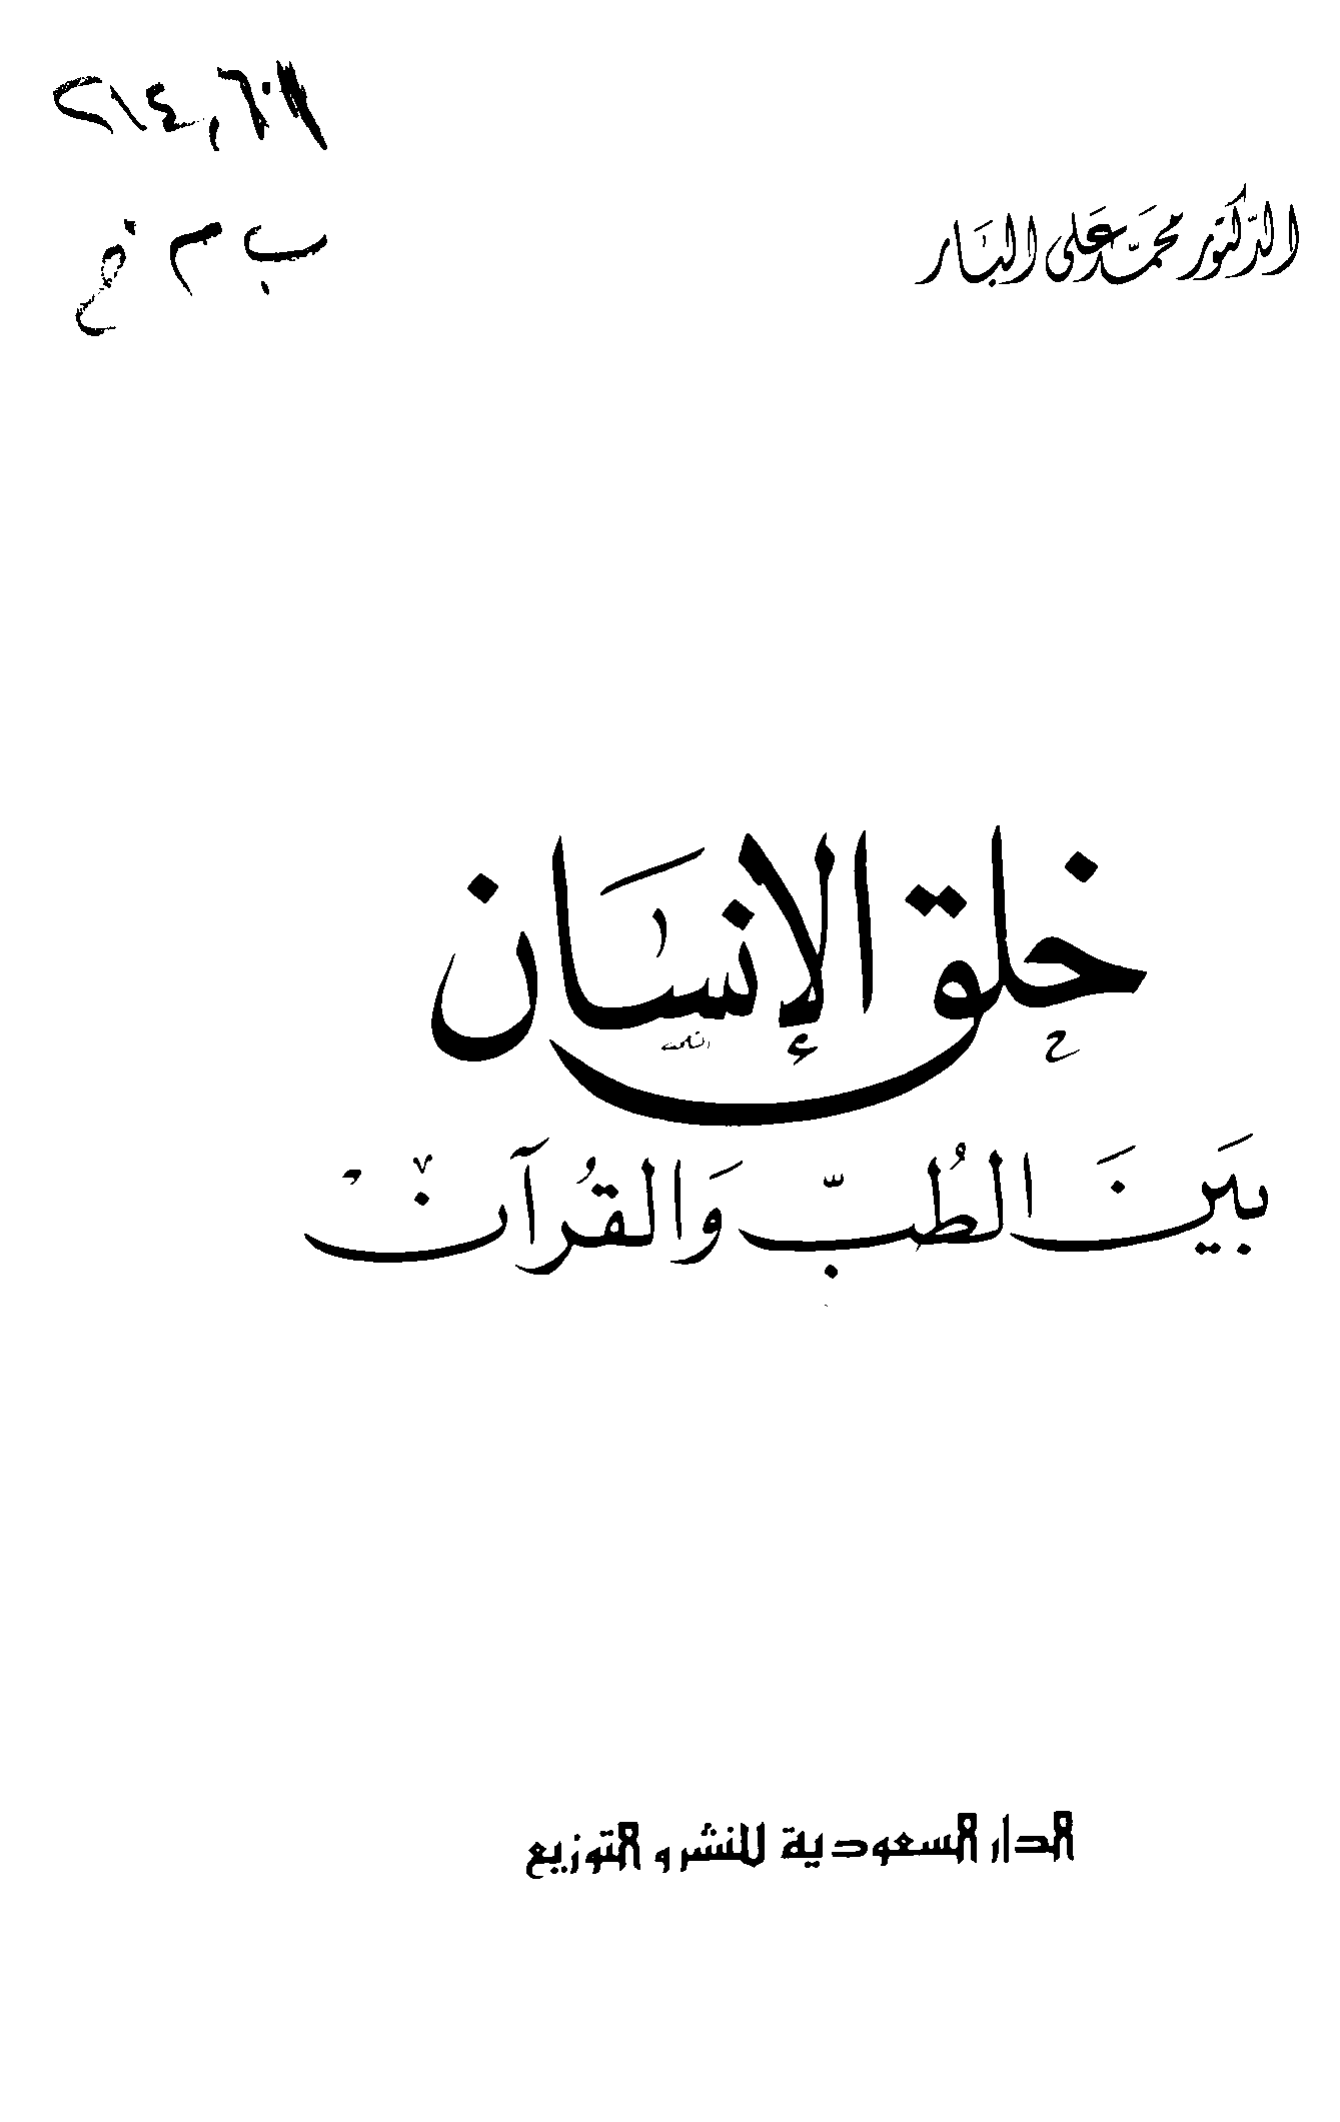 ٢١٤,٦
ب م خ
الدّكتور محمَّد عَلى البَار
خلق الإنسَان
بَينَ الطُبّ وَالقُرآن
الدار السعودية للنشر و التوزيع